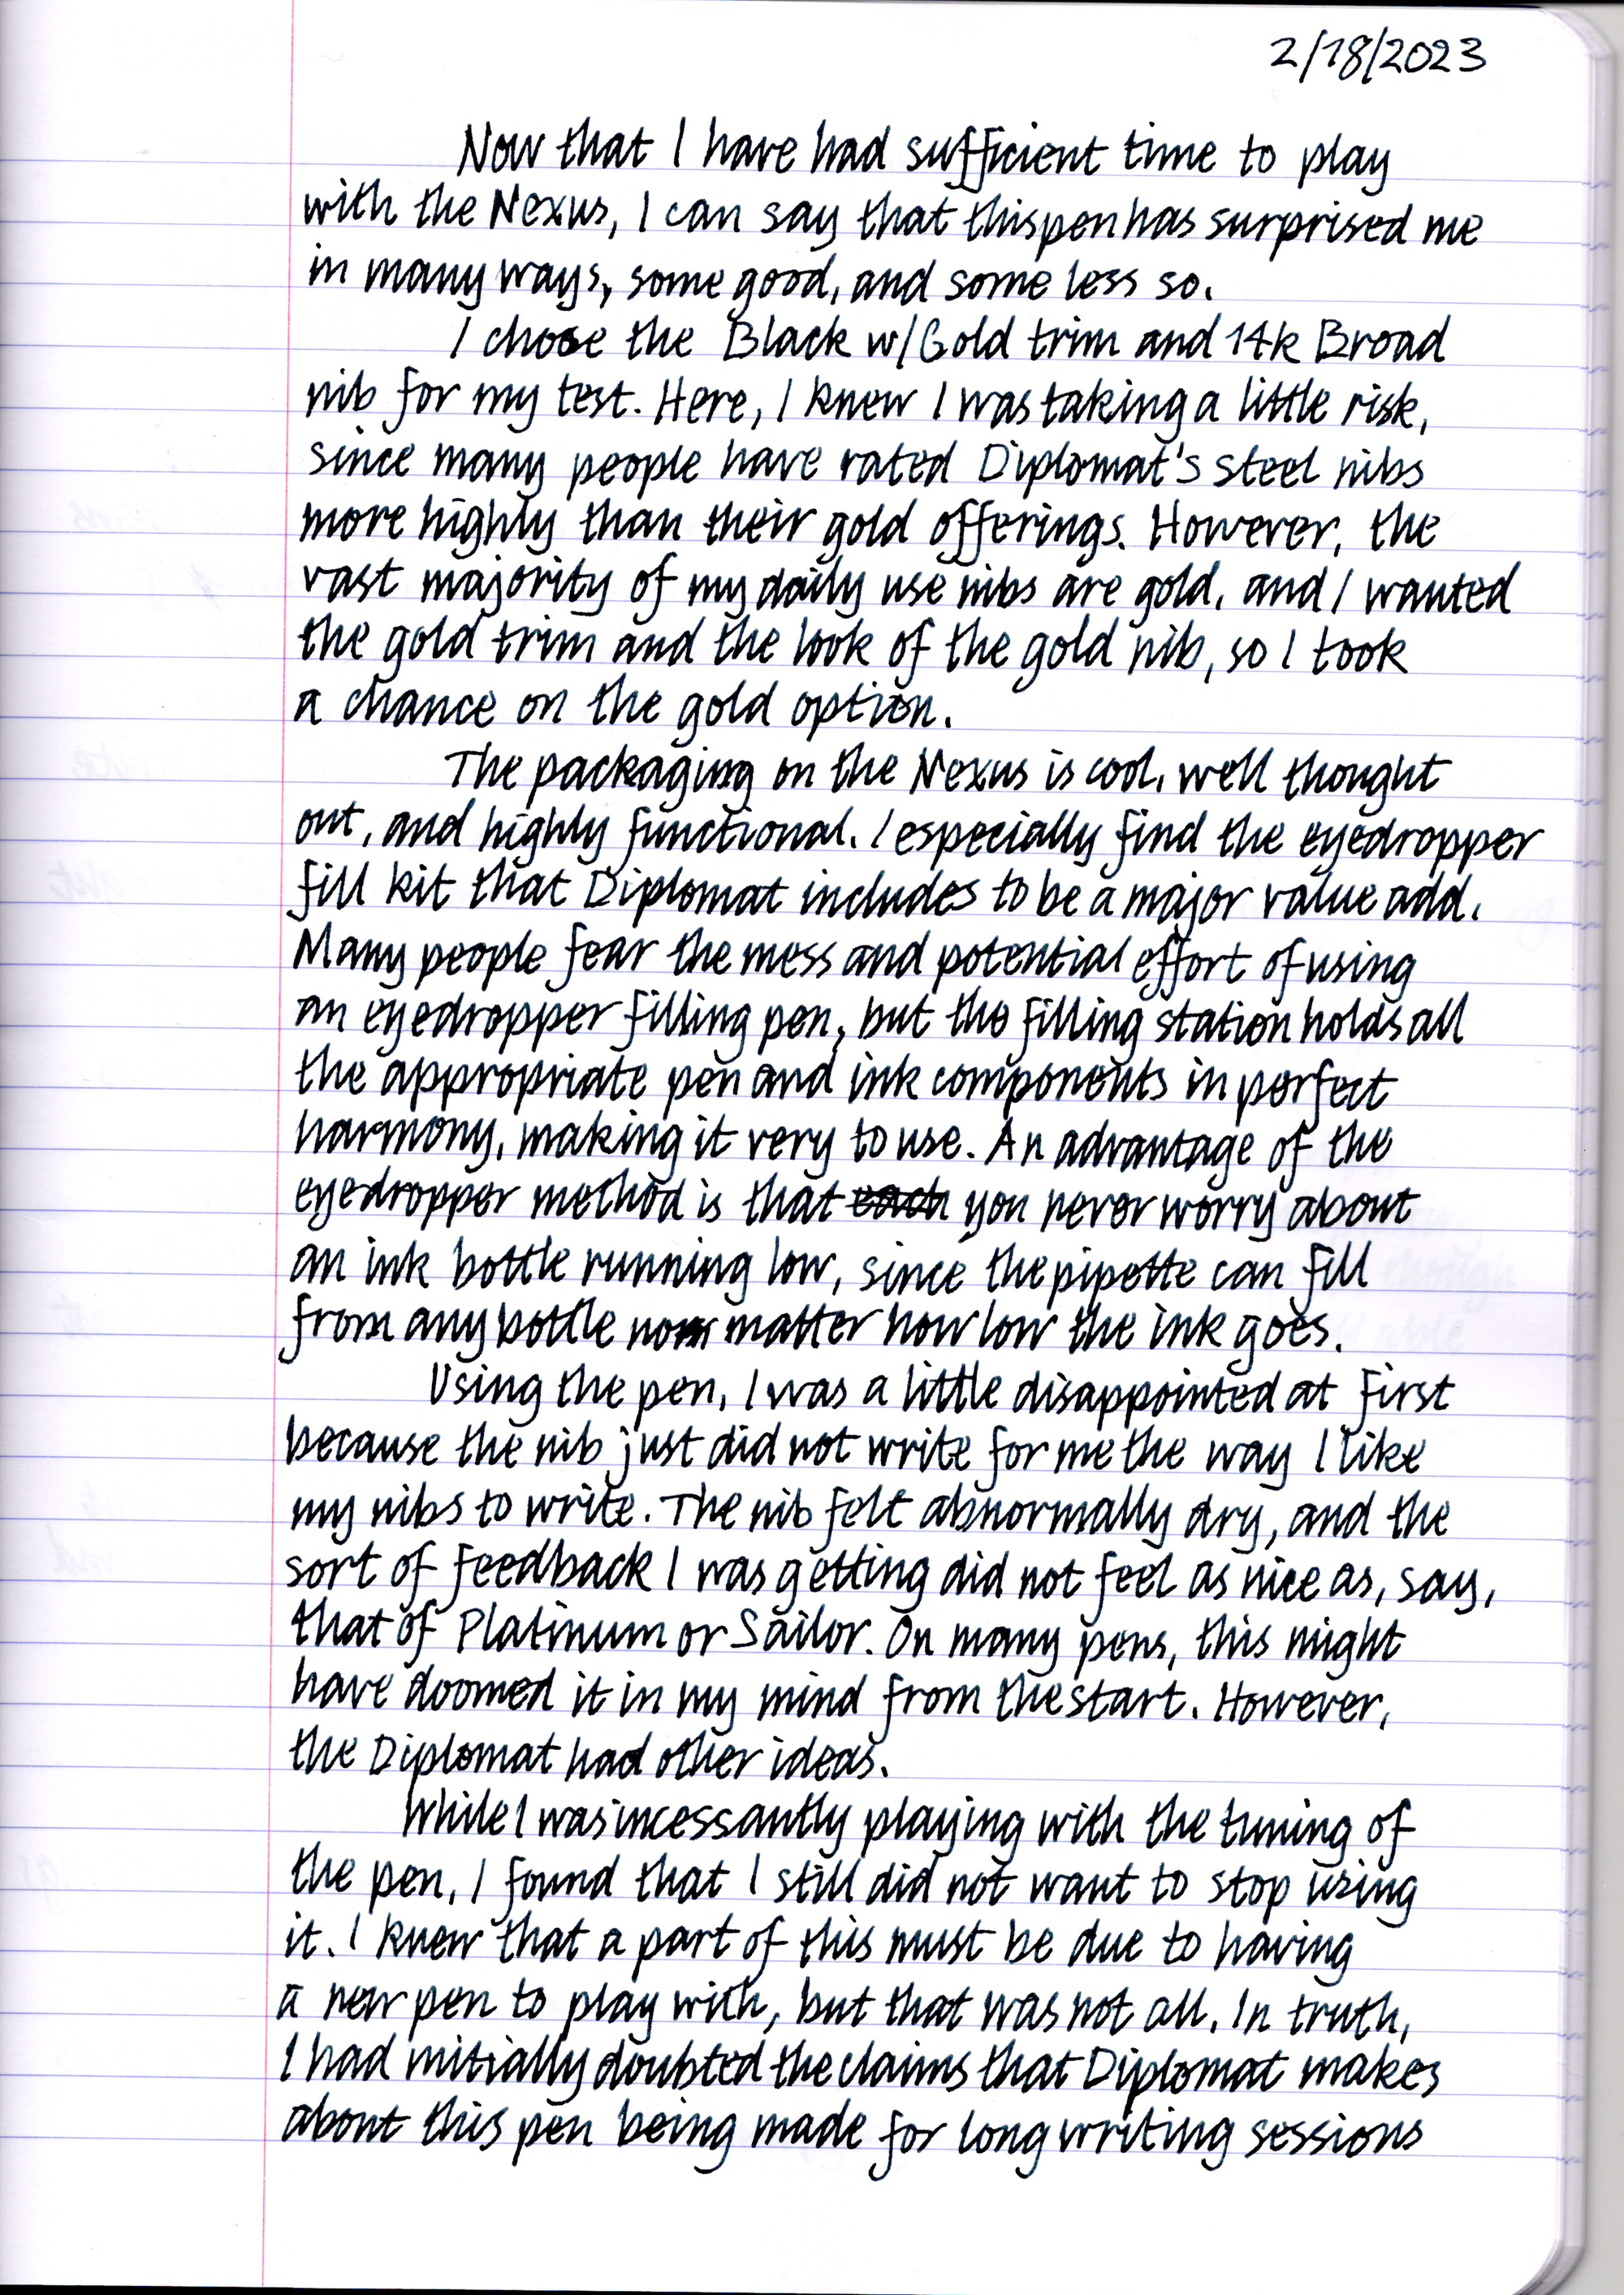 2/18/2023
Now that I have had sufficient time to play
with the Nexus, I can say that this pen has surprised me
in many ways, some good, and some less so.
I chose the Black w/Gold trim and 14k Broad
nib for my test. Here, I knew I was taking a little risk,
since many people have rated Diplomat's steel nibs
more highly than their gold offerings. However, the
vast majority of my daily use nibs are gold, and I wanted
the gold trim and the look of the gold nib, so I took
a chance on the gold option.
The packaging on the Nexus is cool, well thought
out, and highly functional. I especially find the eyedropper
fill kit that Diplomat includes to be a major value add.
Many people fear the mess and potential effort of using
an eyedropper filling pen, but the filling station holds all
the appropriate pen and ink components in perfect
harmony, making it very to use. An advantage of the
eyedropper method is that each you never worry about
an ink bottle running low, since the pipette can fill
from any bottle no matter how low the ink goes.
Using the pen, I was a little disappointed at first
because the nib just did not write for me the way I like
my nibs to write. The nib felt abnormally dry, and the
sort of feedback I was getting did not feel as nice as, say,
that of Platinum or Sailor. On many pens, this might
have doomed it in my mind from the start. However,
the Diplomat had other ideas.
While I was incessantly playing with the tuning of
the pen, I found that I still did not want to stop using
it. I knew that a part of this must be due to having
a new pen to play with, but that was not all. In truth,
I had initially doubted the claims that Diplomat makes
about this pen being made for long writing sessions